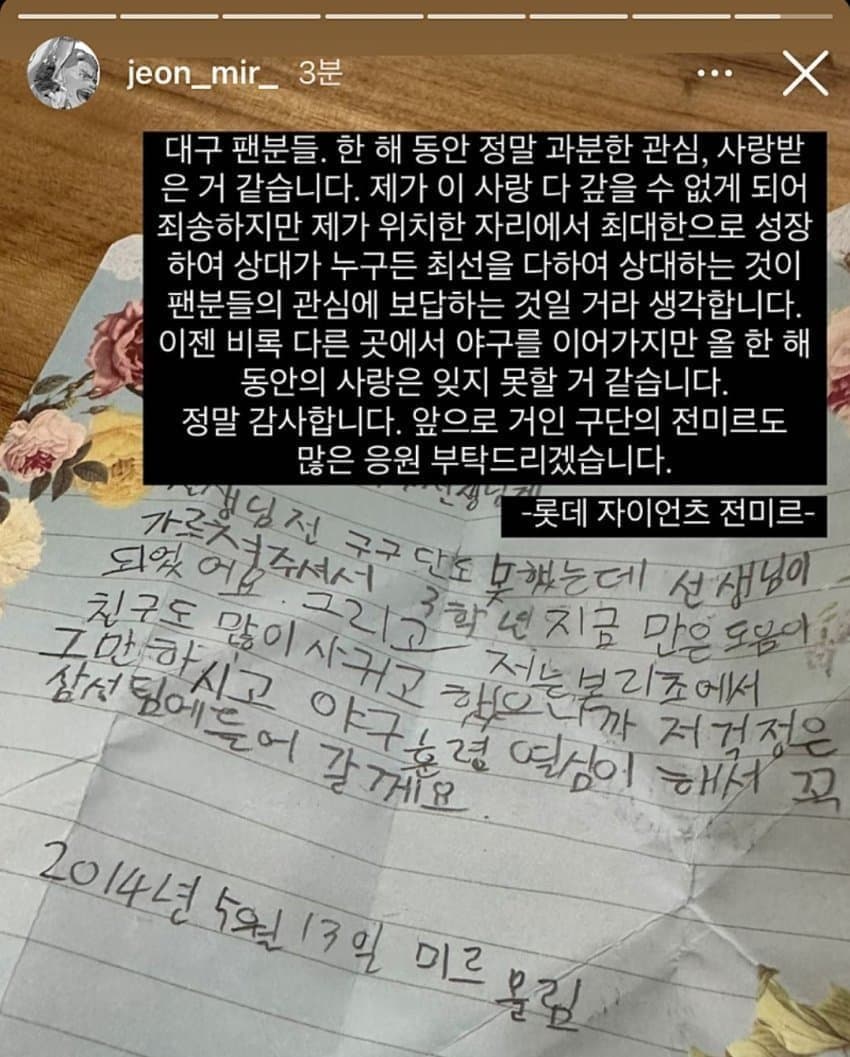 jeon_mir_ 3분
대구 팬분들. 한 해 동안 정말 과분한 관심, 사랑받
은 거 같습니다. 제가 이 사랑 다 갚을 수 없게 되어
죄송하지만 제가 위치한 자리에서 최대한으로 성장
하여 상대가 누구든 최선을 다하여 상대하는 것이
팬분들의 관심에 보답하는 것일 거라 생각합니다.
이젠 비록 다른 곳에서 야구를 이어가지만 올 한 해
동안의 사랑은 잊지 못할 거 같습니다.
정말 감사합니다. 앞으로 거인 구단의 전미르도
많은 응원 부탁드리겠습니다.
-롯데 자이언츠 전미르-
선생님전 구구단도 못했는데 선생님이
가르쳐주셔서 3학년지금 만은도움이
되었어요. 그리고 저는본리초에서
친구도 많이사귀고 했으니까 저걱정은
그만하시고 야구훈령 열심이 해서 꼭
삼성팀에들어갈께요.
2014년 5월 13일 미르 올림